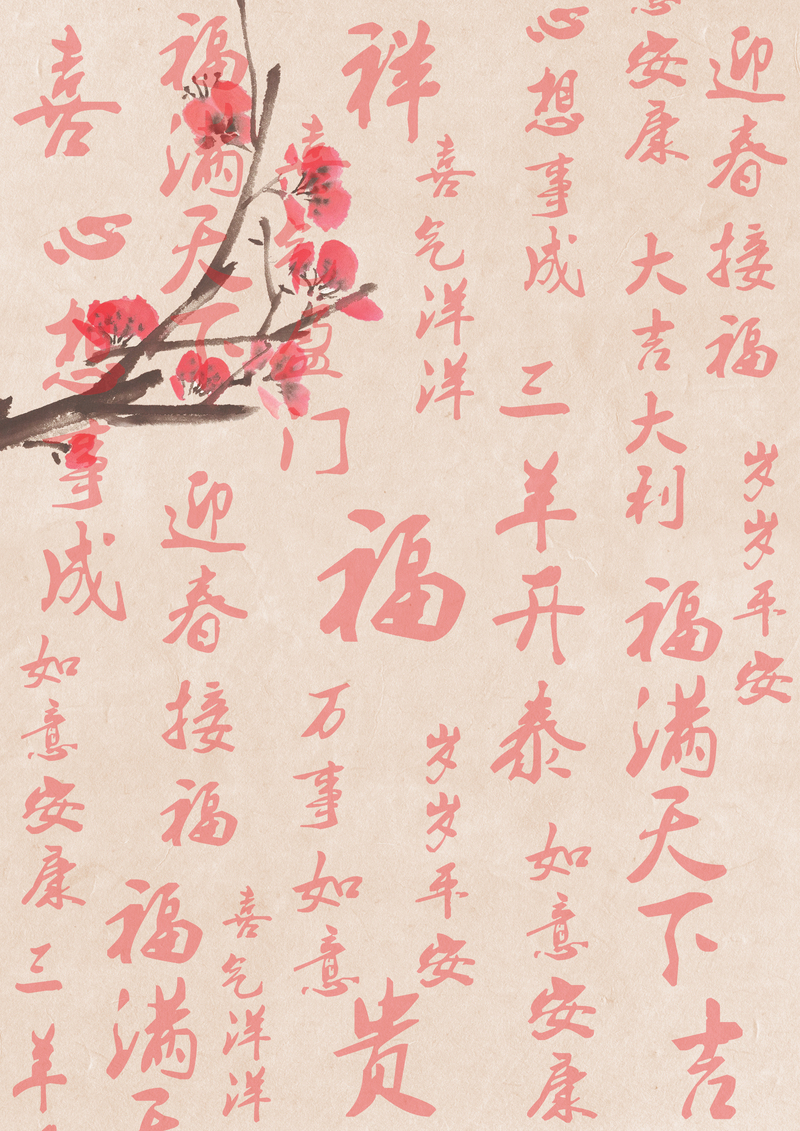 迎春接福
岁岁平安
安康
大吉大利
福满天下
吉
心想事成
三羊开泰
如意安康
喜气洋洋
岁岁平安
祥
福
贵
喜气盈门
万事如意
喜气洋洋
福满天下
迎春接福
福满天
喜
心想事成
如意安康
三羊